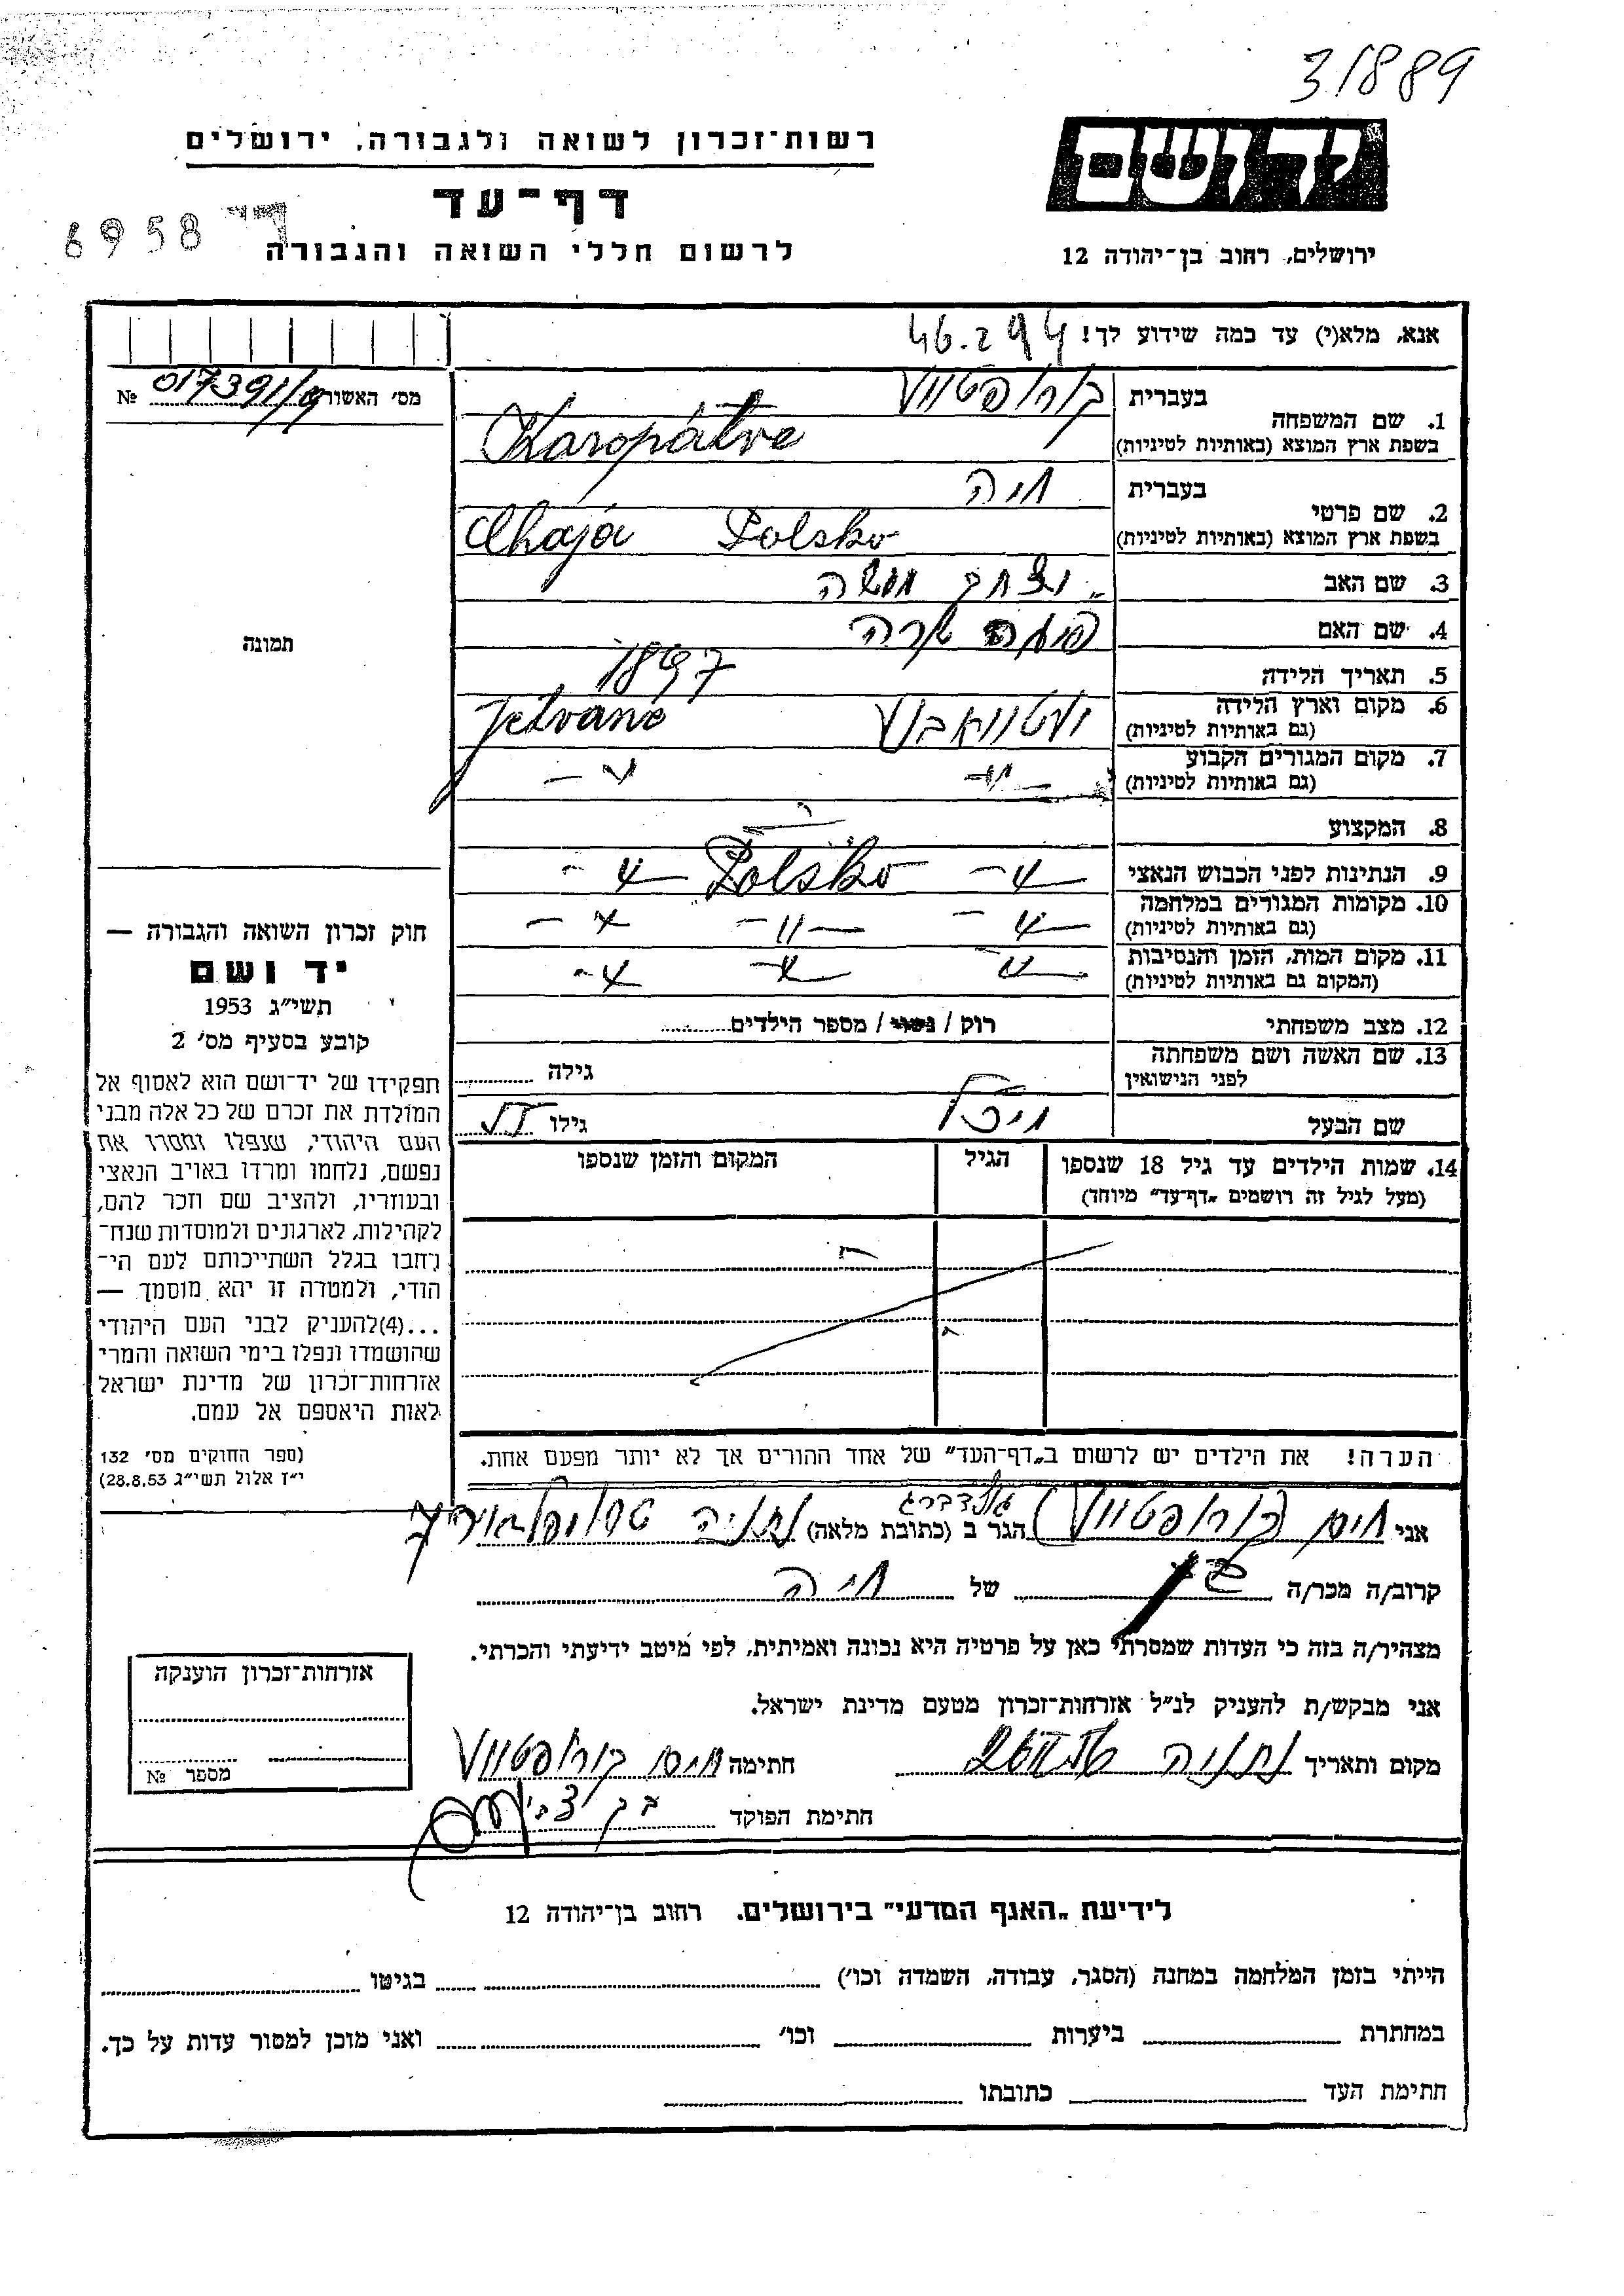 31889
יד ושם
רשות־זכרון לשואה ולגבורה, ירושלים
דף־עד
לרשום חללי השואה והגבורה
6958
ירושלים, רחוב בן־יהודה 12
אנא, מלא(י) עד כמה שידוע לך! 46.294
מס׳ האשורה № 017391/9
תמונה
1. שם המשפחה בעברית
בשפת ארץ המוצא (באותיות לטיניות) Karopatve
2. שם פרטי בעברית חיה
בשפת ארץ המוצא (באותיות לטיניות) Chaja Polsko
3. שם האב יצחק משה
4. שם האם שרה
5. תאריך הלידה 1897
6. מקום וארץ הלידה
(גם באותיות לטיניות) Jetvane
7. מקום המגורים הקבוע
(גם באותיות לטיניות) –״– –״–
8. המקצוע
9. הנתינות לפני הכבוש הנאצי –״– Polsko –״–
10. מקומות המגורים במלחמה
(גם באותיות לטיניות) –״– –״– –״–
11. מקום המות, הזמן והנסיבות
(המקום גם באותיות לטיניות) –״– –״– –״–
12. מצב משפחתי רוק / נשוי / מספר הילדים
13. שם האשה ושם משפחתה
לפני הנישואין גילה
שם הבעל גילו
14. שמות הילדים עד גיל 18 שנספו
(מעל לגיל זה רושמים „דף־עד״ מיוחד)
הגיל
המקום והזמן שנספו
חוק זכרון השואה והגבורה —
יד ושם
תשי״ג 1953
קובע בסעיף מס׳ 2
תפקידו של יד־ושם הוא לאסוף אל
המולדת את זכרם של כל אלה מבני
העם היהודי, שנפלו ומסרו את
נפשם, נלחמו ומרדו באויב הנאצי
ובעוזריו, ולהציב שם וזכר להם,
לקהילות, לארגונים ולמוסדות שנח־
רבו בגלל השתייכותם לעם הי־
הודי, ולמטרה זו יהא מוסמך —
...(4)להעניק לבני העם היהודי
שהושמדו ונפלו בימי השואה והמרי
אזרחות־זכרון של מדינת ישראל
לאות היאספם אל עמם.
(ספר החוקים מס׳ 132
י״ז אלול תשי״ג 28.8.53)
הערה! את הילדים יש לרשום ב„דף־העד״ של אחד ההורים אך לא יותר מפעם אחת.
גולדברג
אני חיים הגר ב (כתובת מלאה) נתניה
קרוב/ה מכר/ה בן של חיה
מצהיר/ה בזה כי העדות שמסרתי כאן על פרטיה היא נכונה ואמיתית, לפי מיטב ידיעתי והכרתי.
אני מבקש/ת להעניק לנ״ל אזרחות־זכרון מטעם מדינת ישראל.
מקום ותאריך נתניה חתימה חיים
חתימת הפוקד
אזרחות־זכרון הוענקה
מספר №
לידיעת „האגף המדעי״ בירושלים. רחוב בן־יהודה 12
הייתי בזמן המלחמה במחנה (הסגר, עבודה, השמדה וכו׳) בגיטו
במחתרת ביערות וכו׳ ואני מוכן למסור עדות על כך.
חתימת העד כתובתו